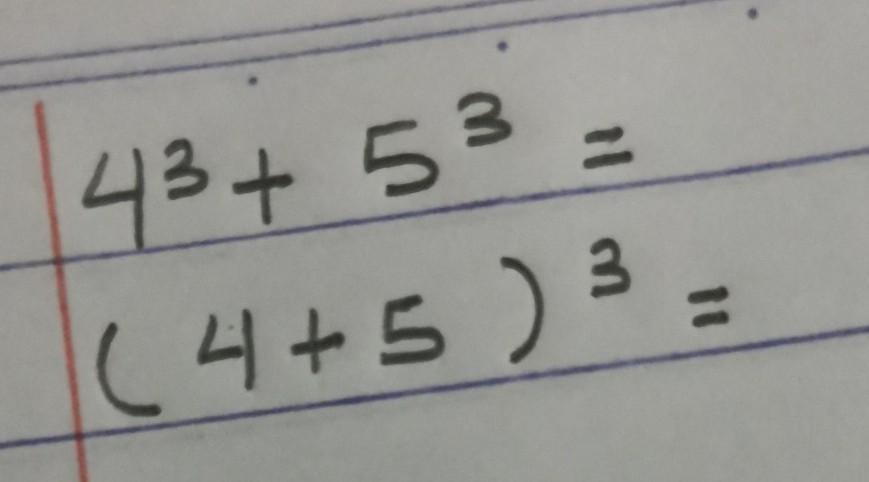 4³ + 5³ =
(4 + 5)³ =